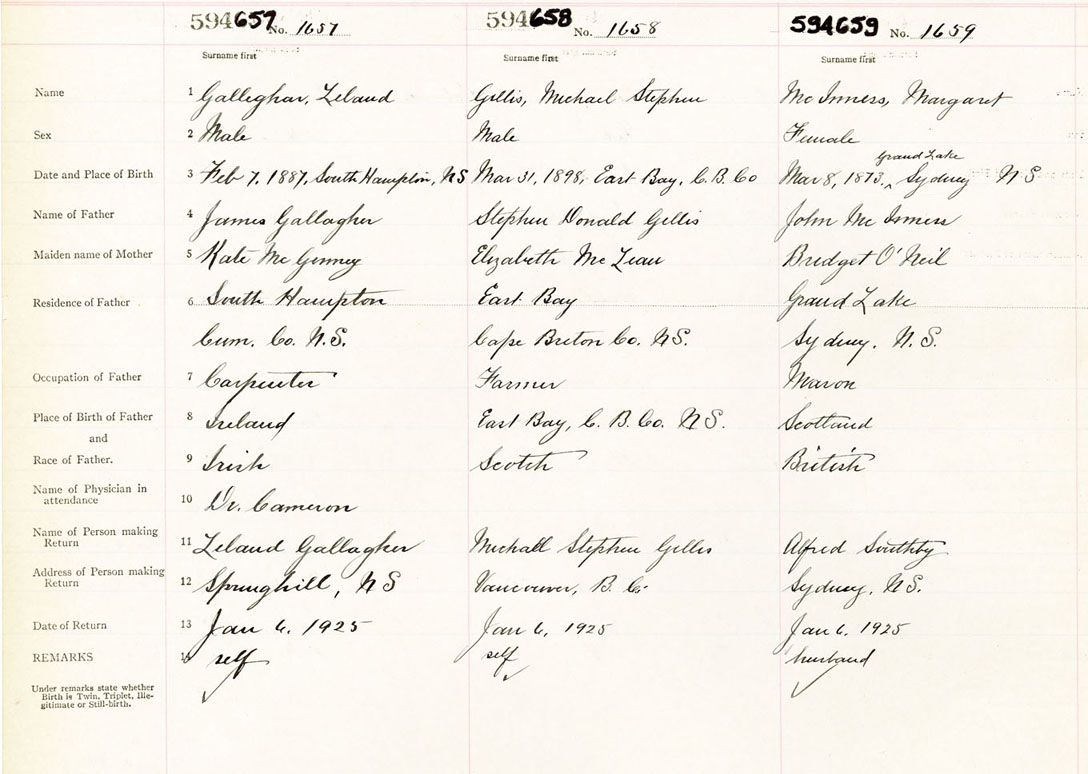 594657 No. 1657 594658 No. 1658 594659 No. 1659
Surname first Surname first Surname first
Name 1 Galleghar, Leland Gillis, Michael Stephen McInness, Margaret
Sex 2 Male Male Female
Grand Lake
Date and Place of Birth 3 Feb 7, 1887, South Hampton, NS Mar 31, 1898, East Bay, C.B. Co Mar 8, 1873, ‸ Sydney NS
Name of Father 4 James Gallagher Stephen Donald Gillis John McInness
Maiden name of Mother 5 Kate McGinney Elizabeth McLean Bridget O'Neil
Residence of Father 6 South Hampton East Bay Grand Lake
Cum. Co. N.S. Cape Breton Co. NS. Sydney, N.S.
Occupation of Father 7 Carpenter Farmer Mason
Place of Birth of Father 8 Ireland East Bay, C. B. Co. NS. Scotland
and
Race of Father. 9 Irish Scotch British
Name of Physician in
attendance 10 Dr. Cameron
Name of Person making
Return 11 Leland Gallagher Michall Stephen Gillis Alfred Southby
Address of Person making
Return 12 Springhill, NS Vancouver, B. C. Sydney, NS.
Date of Return 13 Jan 6, 1925 Jan 6, 1925 Jan 6, 1925
REMARKS 14 self self husband
Under remarks state whether
Birth is Twin, Triplet, Ille-
gitimate or Still-birth.